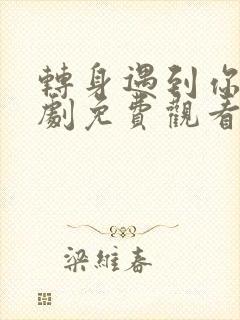 轉身遇到你
劇免費觀看
梁維春